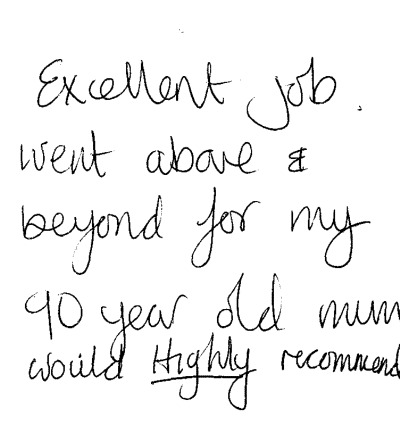 Excellent job.
went above &
beyond for my
90 year old mum
would Highly recommend